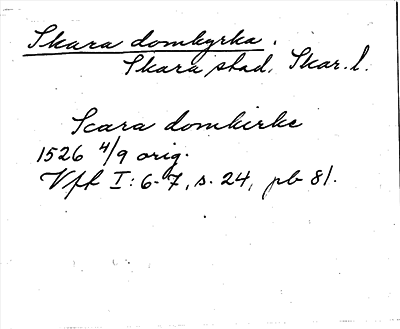 Skara domkyrka.
Skara stad, Skar. l.
Scara domkirke
1526 4/9 orig.
Vff I: 6-7, s. 24, pb 81.